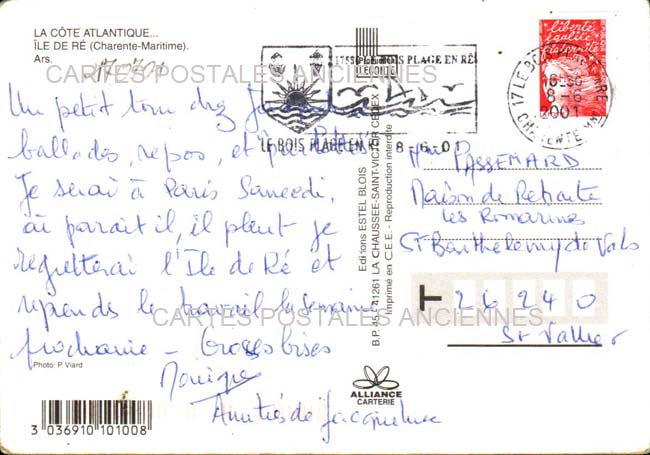 LA CÔTE ATLANTIQUE...
ÎLE DE RÉ (Charente-Maritime).
Ars.
CARTES POSTALES ANCIENNES
Un petit tour chez
ballades, repos, et
Je serai à Paris Samedi,
où parait il, il pleut je
regretterai l'Ile de Ré et
reprends le travail la semaine
prochaine - Grosses bises
Monique
Amitiés de Jacqueline
Photo: P. Viard
3 036910 101008
Editions ESTEL BLOIS
B.P. 45 - 41261 LA CHAUSSEE-SAINT-VICTOR CEDEX
Imprimé en C.E.E. - Reproduction interdite
ALLIANCE
CARTERIE
17580 LE BOIS PLAGE EN RÉ
LE BOIS PLAGE EN RE 8-6-01
liberté
égalité
fraternité
17 LE BOIS PLAGE EN RE
8-6
2001
CHARENTE MME
Mme PASSEMARD
Maison de Retraite
Les Romarines
St Barthelemy de Vals
T 26240
St Vallier
CARTES POSTALES ANCIENNES